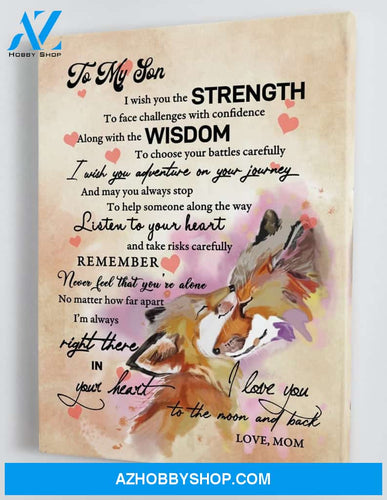 AZ
HOBBY SHOP
To My Son
I wish you the STRENGTH
To face challenges with confidence
Along with the WISDOM
To choose your battles carefully
I wish you adventure on your journey
And may you always stop
To help someone along the way
Listen to your heart
and take risks carefully
REMEMBER
Never feel that you're alone
No matter how far apart
I'm always
right there
IN
your heart
I love you
to the moon and back
LOVE, MOM
AZHOBBYSHOP.COM